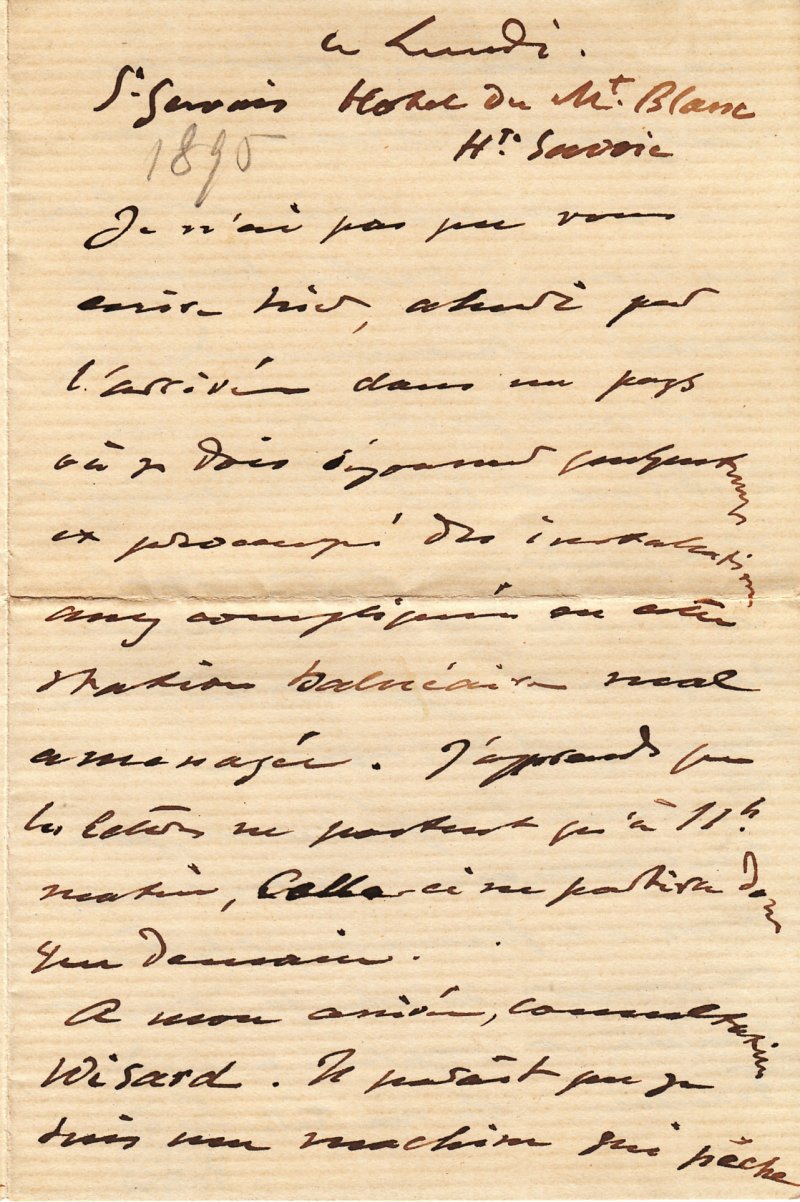 ce Lundi.
St. Gervais Hotel du Mt. Blanc
Hte. Savoie
1895
Je n'ai pas pu vous
écrire hier, ahuri par
l'arrivée dans un pays
où je dois séjourner quelques temps
et préoccupé des installations
assez compliquées en cette
station balnéaire mal
aménagée. J'apprends que
les lettres ne partent qu'à 11h.
matin, Celle-ci ne partira donc
que demain.
A mon arrivée, consultation
Wisard. Il paraît que je
suis une machine qui pèche